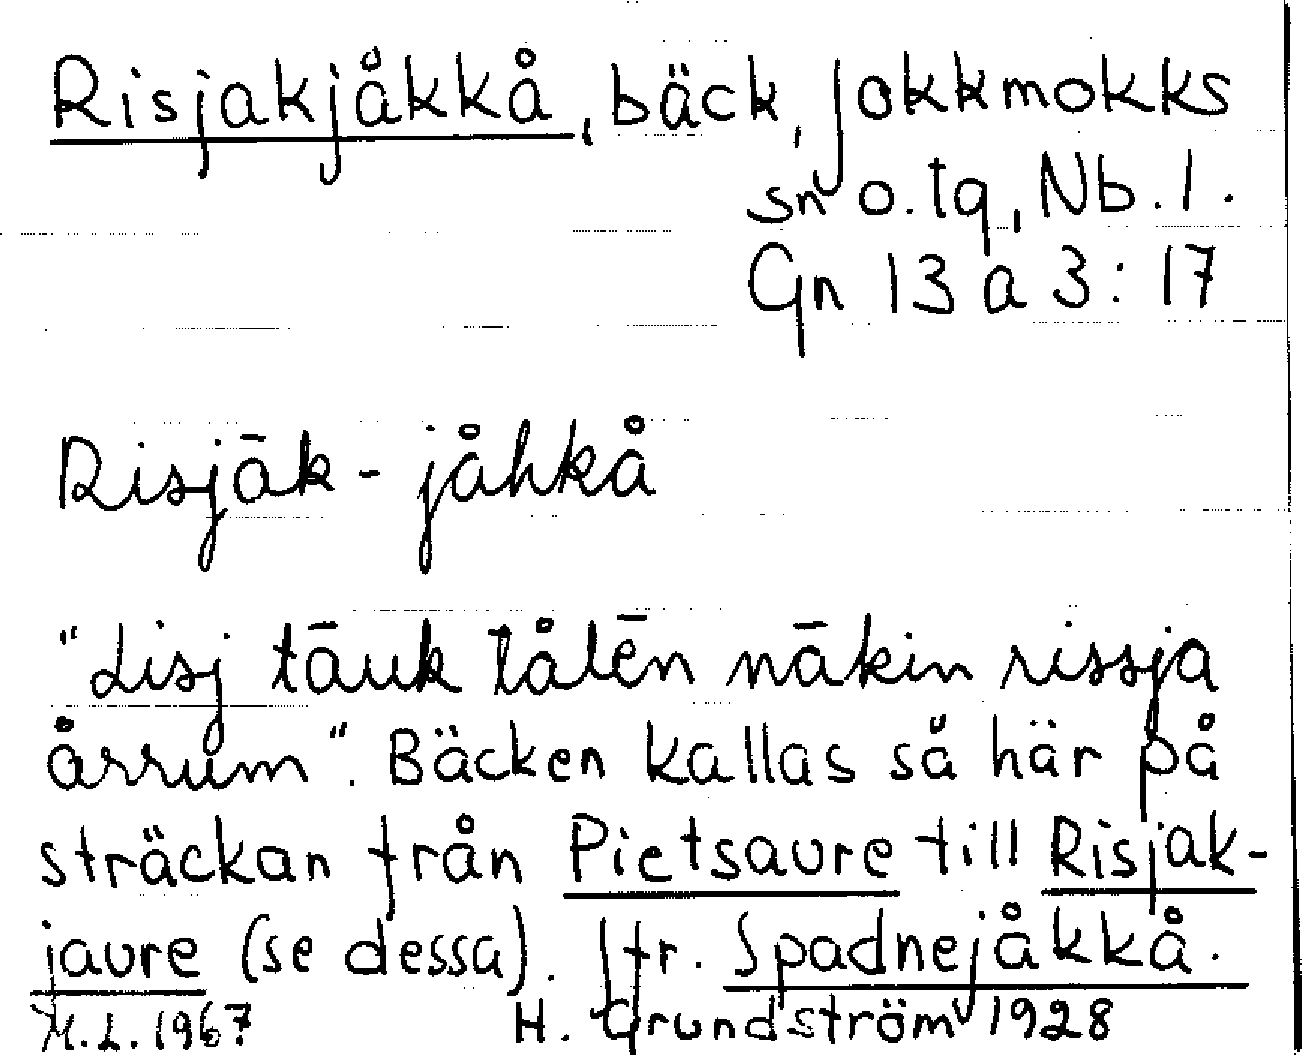 Risjakjåkkå, bäck, Jokkmokks
sn o. tg, Nb. l.
Gn 13 a 3: 17
Risjāk-jåhkå
"Lisj tāuk tålēn nākin rissja
årrum". Bäcken kallas så här på
sträckan från Pietsaure till Risjak-
jaure (se dessa). Jfr. Spadnejåkkå.
M.L. 1967 H. Grundström 1928